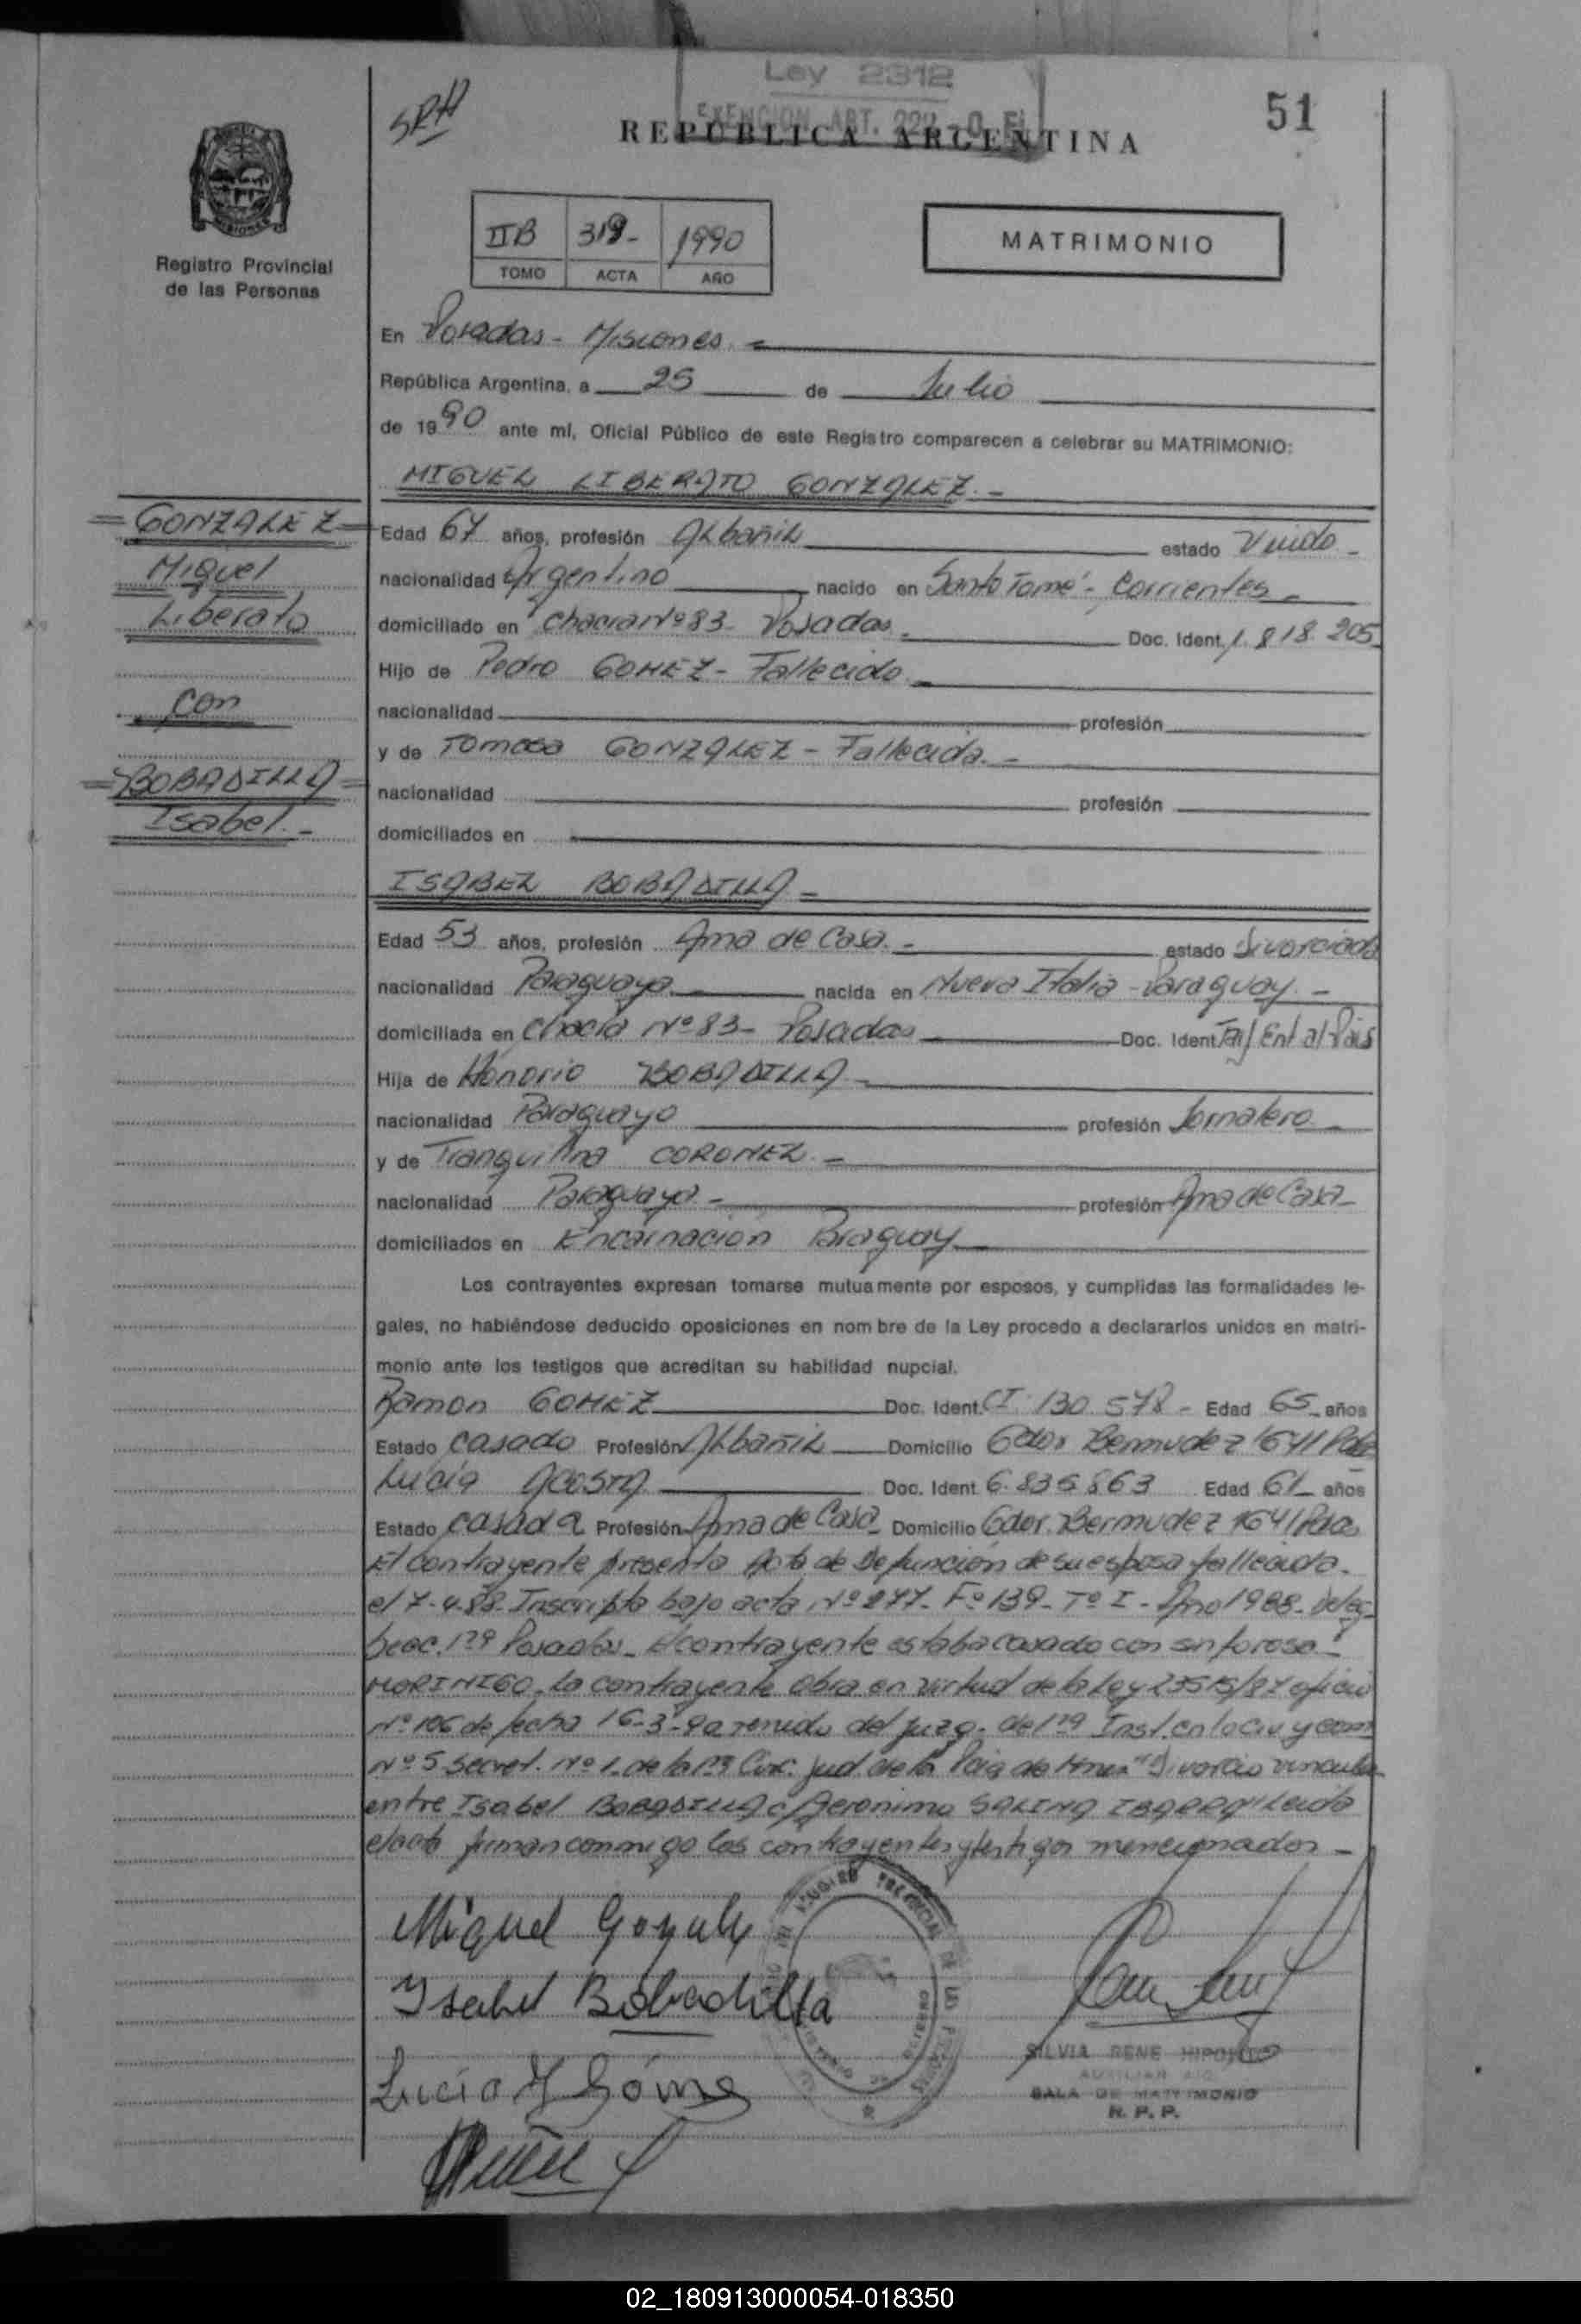 Ley 2312
EXENCION ART. 222
51
REPUBLICA ARGENTINA
IIB 319- 1990
TOMO ACTA AÑO
MATRIMONIO
Registro Provincial
de las Personas
En Posadas - Misiones
República Argentina, a 25 de Julio
de 1990 ante mí, Oficial Público de este Registro comparecen a celebrar su MATRIMONIO:
MIGUEL LIBERATO GONZALEZ.-
GONZALEZ
Miguel
Liberato
con
BOBADILLA
Isabel.-
Edad 67 años, profesión Albañil estado Viudo-
nacionalidad Argentino nacido en Santo Tomé - Corrientes-
domiciliado en Chacra Nº 83- Posadas- Doc. Ident. 1.818.205
Hijo de Pedro GOMEZ - Fallecido-
nacionalidad profesión
y de Tomasa GONZALEZ - Fallecida.-
nacionalidad profesión
domiciliados en
ISABEL BOBADILLA-
Edad 53 años, profesión Ama de Casa.- estado divorciada
nacionalidad Paraguaya nacida en Nueva Italia - Paraguay-
domiciliada en Chacra Nº 83- Posadas Doc. Ident Taj Ent al Pais
Hija de Honorio BOBADILLA-
nacionalidad Paraguayo profesión Jornalero-
y de Tranquilina CORONEL.-
nacionalidad Paraguaya- profesión Ama de Casa-
domiciliados en Encarnación Paraguay
Los contrayentes expresan tomarse mutuamente por esposos, y cumplidas las formalidades le-
gales, no habiéndose deducido oposiciones en nombre de la Ley procedo a declararlos unidos en matri-
monio ante los testigos que acreditan su habilidad nupcial.
Ramon GOMEZ Doc. Ident. CI 130.578- Edad 65 años
Estado Casado Profesión Albañil Domicilio Gdor Bermudez 1641 Pdas
Lucia ACOSTA Doc. Ident. 6.835.863 Edad 61 años
Estado Casada Profesión Ama de Casa Domicilio Gdor. Bermudez 1641 Pdas
El contrayente presenta Acta de Defunción de su esposa fallecida.
el 7-4-88. Inscripta bajo acta Nº 277- Fº 139- Tº I - Año 1988- Deleg
Secc. 1ra Posadas- El contrayente estaba casado con Sinforosa
MORINIGO. La contrayente obra en virtud de la Ley 23515/87 oficio
Nº 106 de fecha 16-3-90 del Juzg. de 1ra Inst. en lo Civ. y Com
Nº 5 Secret. Nº 1- de la 1ra Circ. Jud de la Pcia de Divorcio vincular
entre Isabel BOBADILLA c/ Geronimo SALINA IBARRA" Leida
el acta firman conmigo los contrayentes y testigos mencionados-
Miguel Gonzalez
Isabel Bobadilla
Lucia Gómez
SILVIA RENE HIPOLITO
AUXILIAR
SALA DE MATRIMONIO
R. P. P.
02_180913000054-018350